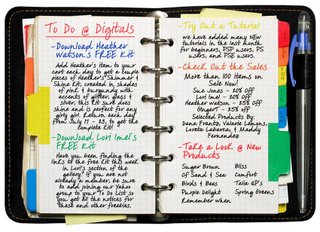 To Do @ Digitals
-Download Heather
Watson's FREE Kit
Add Heather's item to your
cart each day to get a couple
pieces of Heather's Shimmer &
Shine Kit, created in shades
of pink & burgundy with
accents of glitter, glass &
silver, this kit sure does
shine and is perfect for any
girly girl. Return each day
from July 19 - 23, to get the
complete kit!
-Download Lori Imel's
FREE Kit
Have you been finding the
links to the free kit this week
in Lori's section of the
gallery? If you are not
already a member, be sure
to add joining our Yahoo
group to your To Do List so
you get all the notices for
these and other freebies.
-Try Out a Tutorial
we have added many NEW
tutorials in the last month
for beginners, PSP users, PS
users, and PSE users.
-Check Out the Sales
More than 100 items on
Sale Now!
Sue Jones - 20% Off
Lori Imel - 20% Off
Heather Watson - 25% Off
Gingert - 25% Off
Selected Products By
Jean Franks, Valerie Lemons,
Loretta Labarca, & Maddy
Fernandez
-Take a Look @ New
Products
Sugar Brown Bliss
Of Sand & Sea Comfort
Birds & Bees
Purple Delight Spring Greens
Remember when